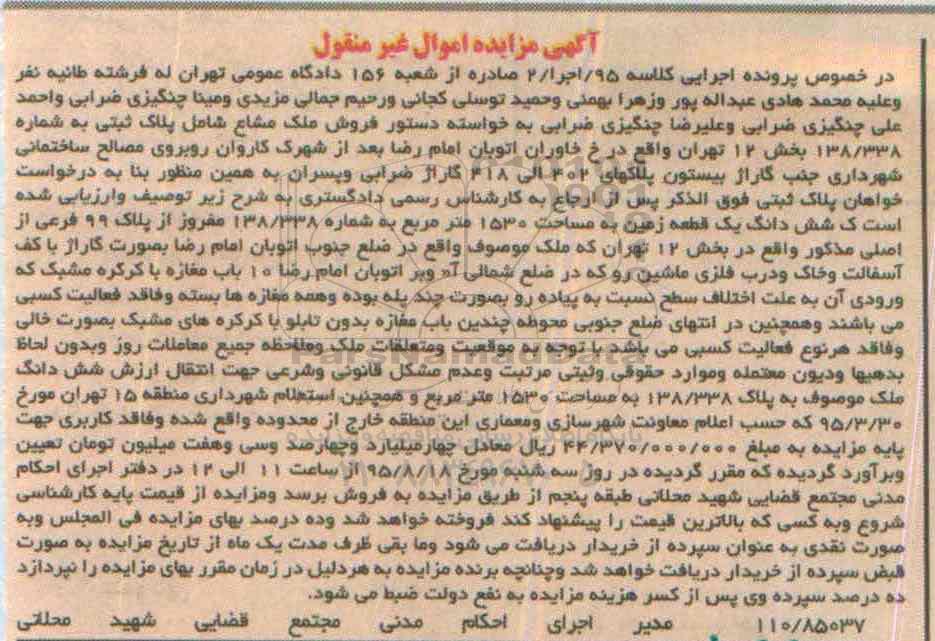 آگهی مزایده اموال غیر منقول
در خصوص پرونده اجرایی کلاسه ۹۵/اجرا/۲ صادره از شعبه ۱۵۶ دادگاه عمومی تهران له فرشته طانیه نفر
وعلیه محمد هادی عبداله پور وزهرا بهمنی وحمید توسلی کجانی ورحیم جمالی مزیدی ومینا چنگیزی ضرابی واحمد
علی چنگیزی ضرابی وعلیرضا چنگیزی ضرابی به خواسته دستور فروش ملک مشاع شامل پلاک ثبتی به شماره
۱۳۸/۳۳۸ بخش ۱۲ تهران واقع در خ خاوران اتوبان امام رضا بعد از شهرک کاروان روبروی مصالح ساختمانی
شهرداری جنب گاراژ بیستون پلاکهای ۴۰۲ الی ۴۱۸ گاراژ ضرابی وپسران به همین منظور بنا به درخواست
خواهان پلاک ثبتی فوق الذکر پس از ارجاع به کارشناس رسمی دادگستری به شرح زیر توصیف وارزیابی شده
است ک شش دانگ یک قطعه زمین به مساحت ۱۵۳۰ متر مربع به شماره ۱۳۸/۳۳۸ مفروز از پلاک ۹۹ فرعی از
اصلی مذکور واقع در بخش ۱۲ تهران که ملک موصوف واقع در ضلع جنوب اتوبان امام رضا بصورت گاراژ با کف
آسفالت وخاک ودرب فلزی ماشین رو که در ضلع شمالی آن وبر اتوبان امام رضا ۱۰ باب مغازه با کرکره مشبک که
ورودی آن به علت اختلاف سطح نسبت به پیاده رو بصورت چند پله بوده وهمه مغازه ها بسته وفاقد فعالیت کسبی
می باشند وهمچنین در انتهای ضلع جنوبی محوطه چندین باب مغازه بدون تابلو با کرکره های مشبک بصورت خالی
وفاقد هرنوع فعالیت کسبی می باشد با توجه به موقعیت ومتعلقات ملک وملاحظه جمیع معاملات روز وبدون لحاظ
بدهیها ودیون معتمله وموارد حقوقی وثبتی مرتبت وعدم مشکل قانونی وشرعی جهت انتقال ارزش شش دانگ
ملک موصوف به پلاک ۱۳۸/۳۳۸ به مساحت ۱۵۳۰ متر مربع و همچنین استعلام شهرداری منطقه ۱۵ تهران مورخ
۹۵/۳/۳۰ که حسب اعلام معاونت شهرسازی ومعماری این منطقه خارج از محدوده واقع شده وفاقد کاربری جهت
پایه مزایده به مبلغ ۴۴/۳۷۰/۰۰۰/۰۰۰ ریال معادل چهارمیلیارد وچهارصد وسی وهفت میلیون تومان تعیین
وبرآورد گردیده که مقرر گردیده در روز سه شنبه مورخ ۹۵/۸/۱۸ از ساعت ۱۱ الی ۱۲ در دفتر اجرای احکام
مدنی مجتمع قضایی شهید محلاتی طبقه پنجم از طریق مزایده به فروش برسد ومزایده از قیمت پایه کارشناسی
شروع وبه کسی که بالاترین قیمت را پیشنهاد کند فروخته خواهد شد وده درصد بهای مزایده فی المجلس وبه
صورت نقدی به عنوان سپرده از خریدار دریافت می شود وما بقی ظرف مدت یک ماه از تاریخ مزایده به صورت
قبض سپرده از خریدار دریافت خواهد شد وچنانچه برنده مزایده به هردلیل در زمان مقرر بهای مزایده را نپردازد
ده درصد سپرده وی پس از کسر هزینه مزایده به نفع دولت ضبط می شود.
۱۱۰/۸۵۰۳۷ مدیر اجرای احکام مدنی مجتمع قضایی شهید محلاتی
ParsNamadData